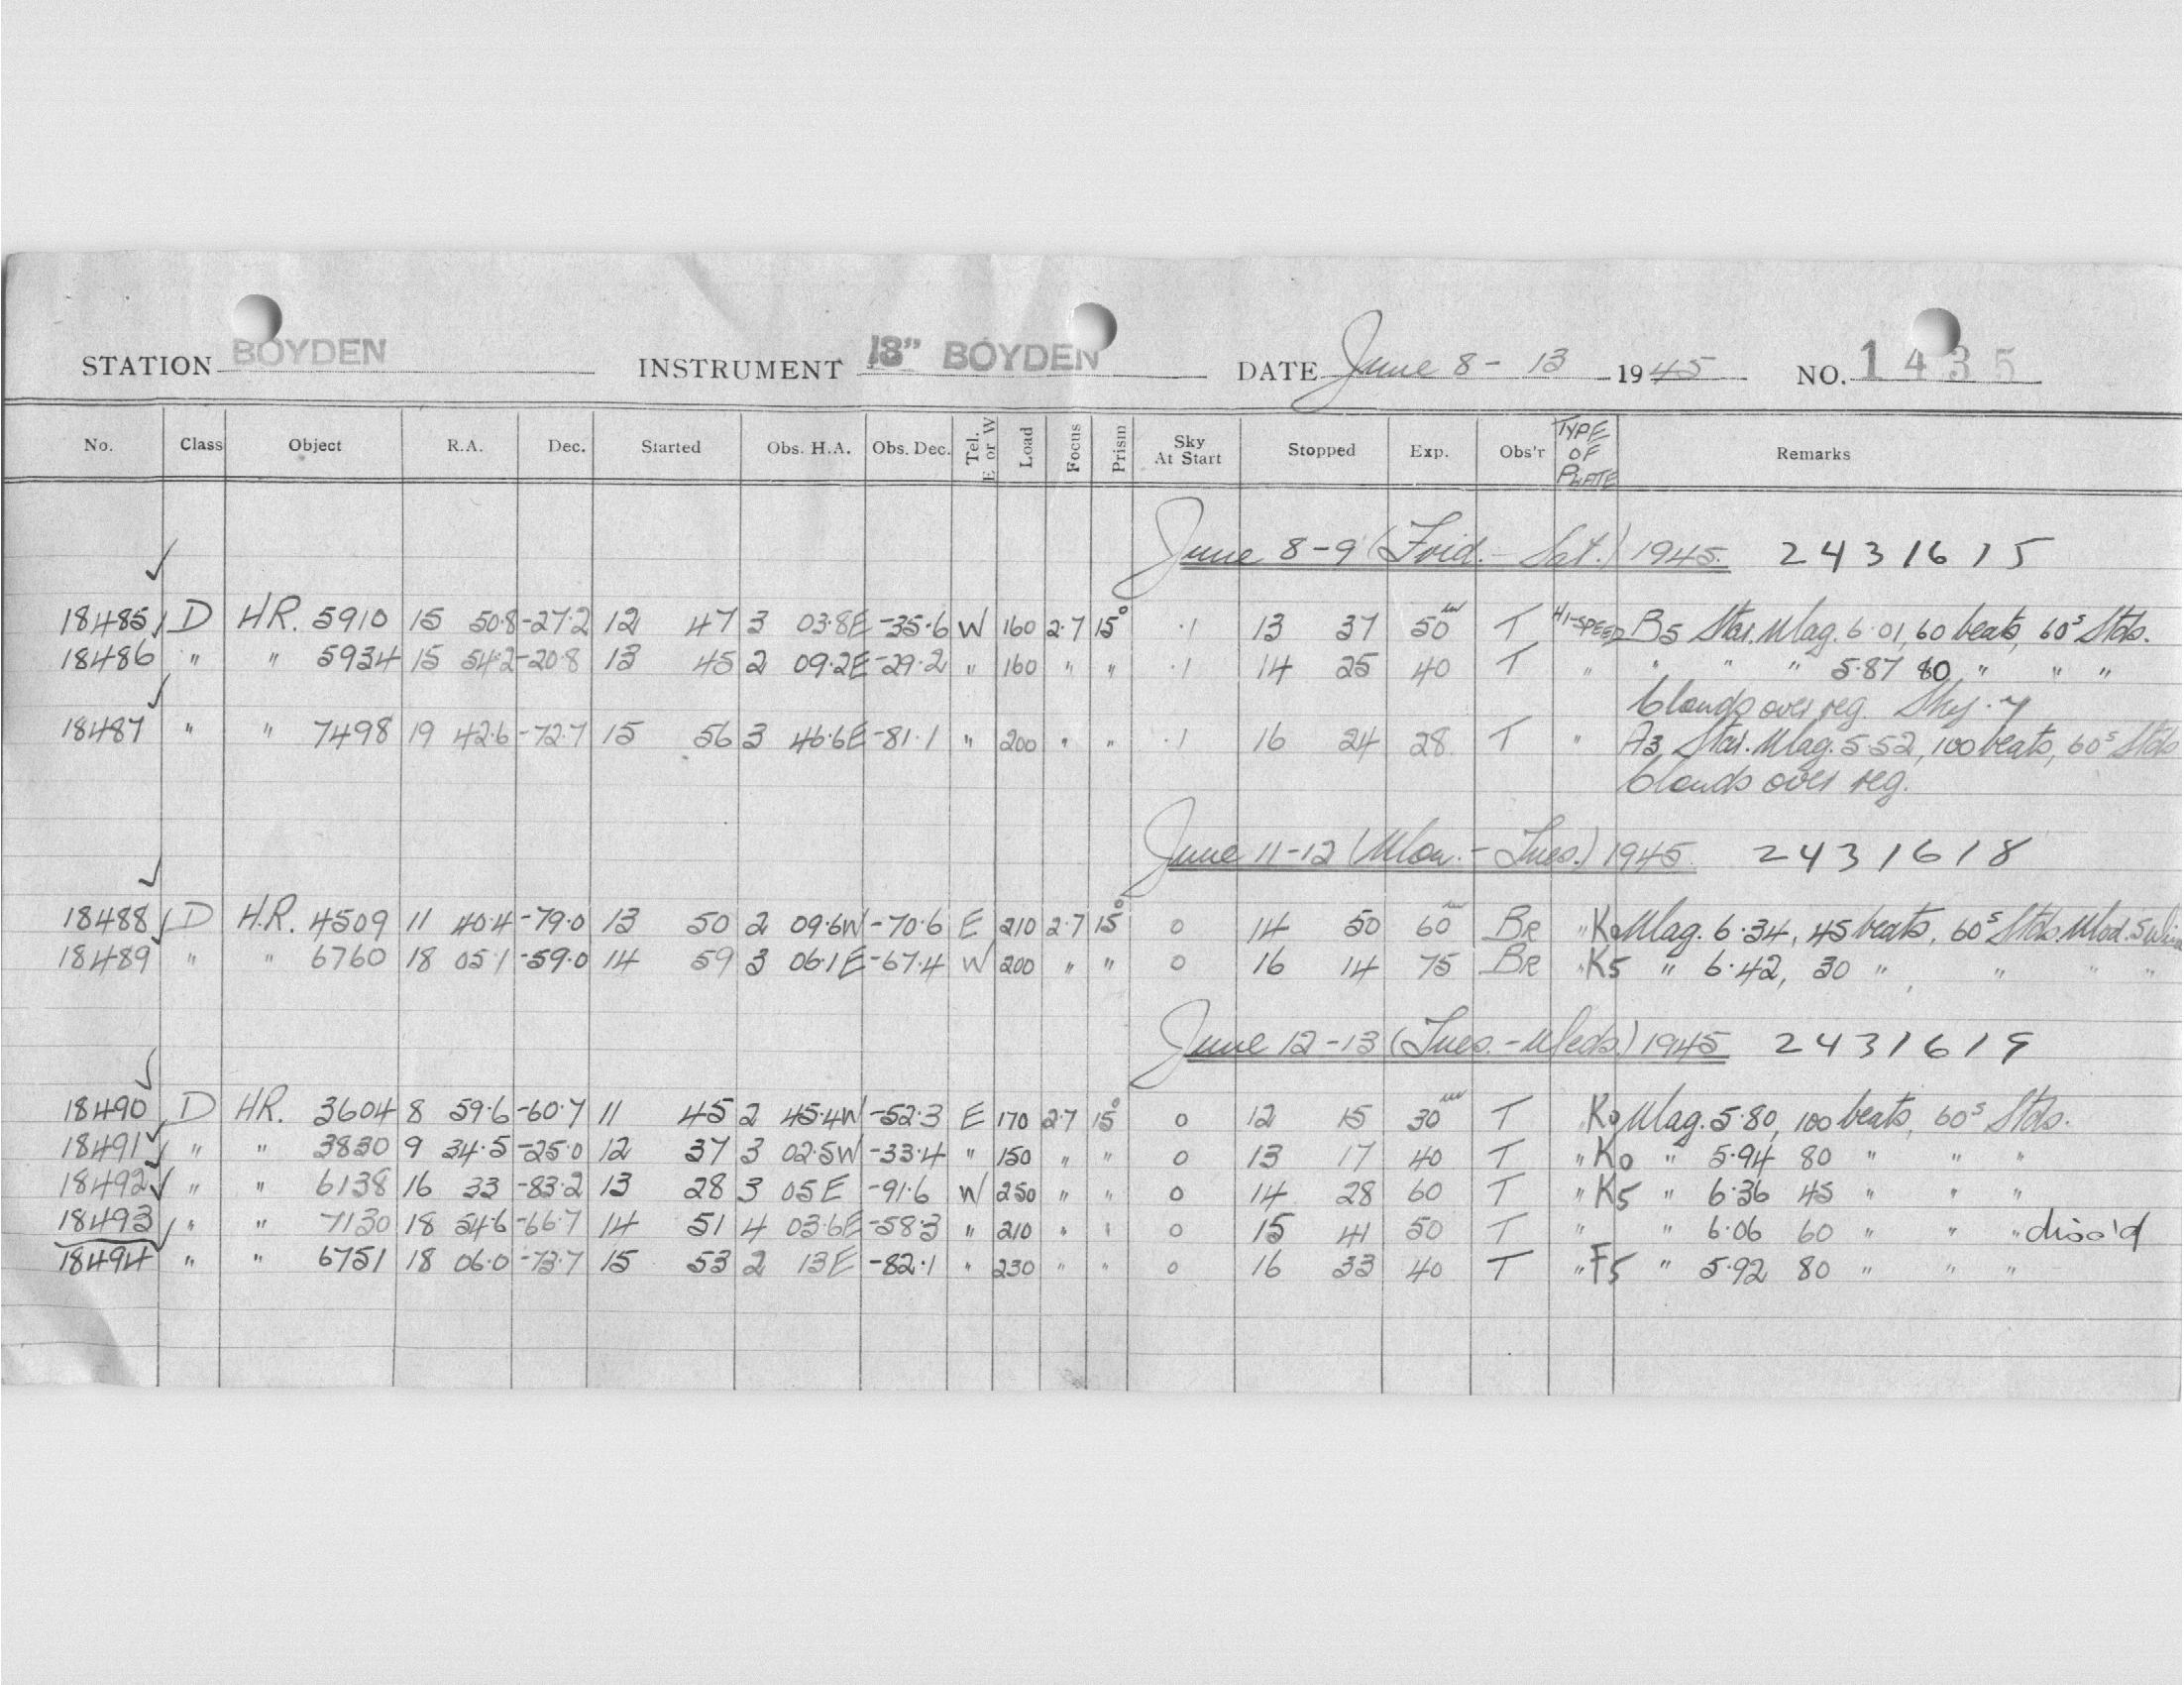 STATION BOYDEN INSTRUMENT 18" BOYDEN DATE June 8 - 13 1945 NO. 1435
No. Class Object R.A. Dec. Started Obs. H.A. Obs. Dec. Tel. E or W Load Focus Prism Sky At Start Stopped Exp. Obs'r TYPE OF PLATE Remarks
June 8-9 (Frid. - Sat.) 1945. 2431615
18485 D HR. 5910 15 50.8 -27.2 12 47 3 03.8E -35.6 W 160 2.7 15° .1 13 37 50m T HI-SPEED B5 Star. Mag. 6.01, 60 beats, 60s Stds.
18486 " " 5934 15 54.2 -20.8 13 45 2 09.2E -29.2 " 160 " " .1 14 25 40 T " " " " 5.87 80 " " "
Clouds over reg. Sky .7
18487 " " 7498 19 42.6 -72.7 15 56 3 46.6E -81.1 " 200 " " .1 16 24 28 T " A3 Star. Mag. 5.52, 100 beats, 60s Stds
Clouds over reg.
June 11-12 (Mon. - Tues.) 1945. 2431618
18488 D H.R. 4509 11 40.4 -79.0 13 50 2 09.6W -70.6 E 210 2.7 15° 0 14 50 60m BR " K0 Mag. 6.34, 45 beats, 60s Stds. Mod. S
18489 " " 6760 18 05.1 -59.0 14 59 3 06.1E -67.4 W 200 " " 0 16 14 75 BR " K5 " 6.42, 30 " " " "
June 12-13 (Tues. - Weds.) 1945 2431619
18490 D HR. 3604 8 59.6 -60.7 11 45 2 45.4W -52.3 E 170 2.7 15° 0 12 15 30m T " K0 Mag. 5.80, 100 beats, 60s Stds.
18491 " " 3830 9 34.5 -25.0 12 37 3 02.5W -33.4 " 150 " " 0 13 17 40 T " K0 " 5.94 80 " " "
18492 " " 6138 16 33 -83.2 13 28 3 05E -91.6 W 250 " " 0 14 28 60 T " K5 " 6.36 45 " " "
18493 " " 7130 18 54.6 -66.7 14 51 4 03.6E -58.3 " 210 " " 0 15 41 50 T " " 6.06 60 " " " disc'd
18494 " " 6751 18 06.0 -73.7 15 53 2 13E -82.1 " 230 " " 0 16 33 40 T " F5 " 5.92 80 " " "